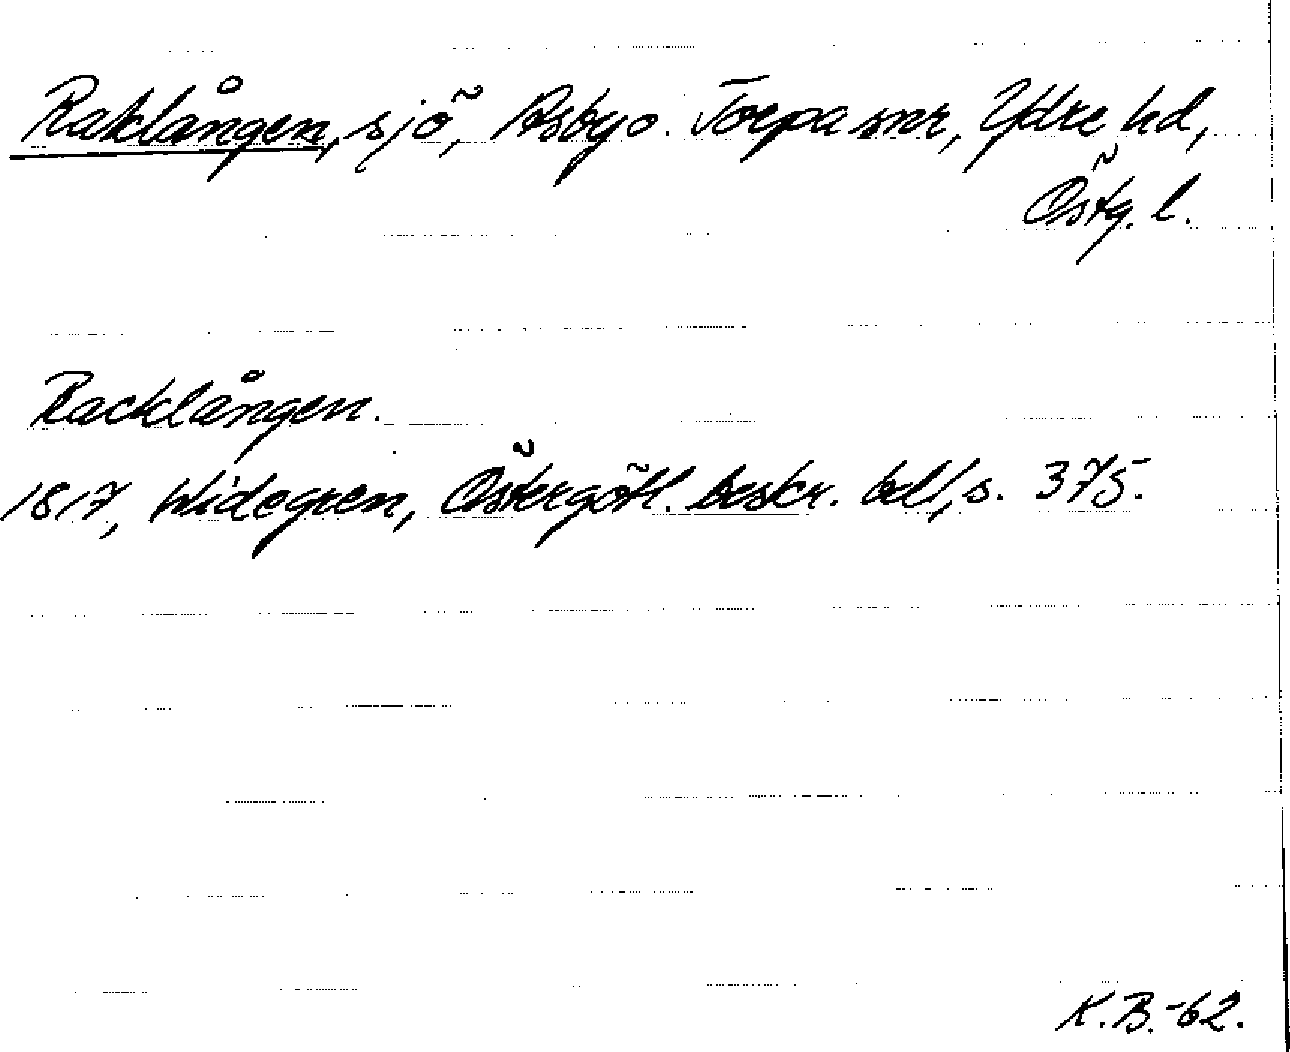 Raklången, sjö, Asby o. Torpa snr, Ydre hd,
Östg. l.
Racklången.
1817, Widegren, Östergötl. beskr. bd I, s. 375.
K.B.-62.